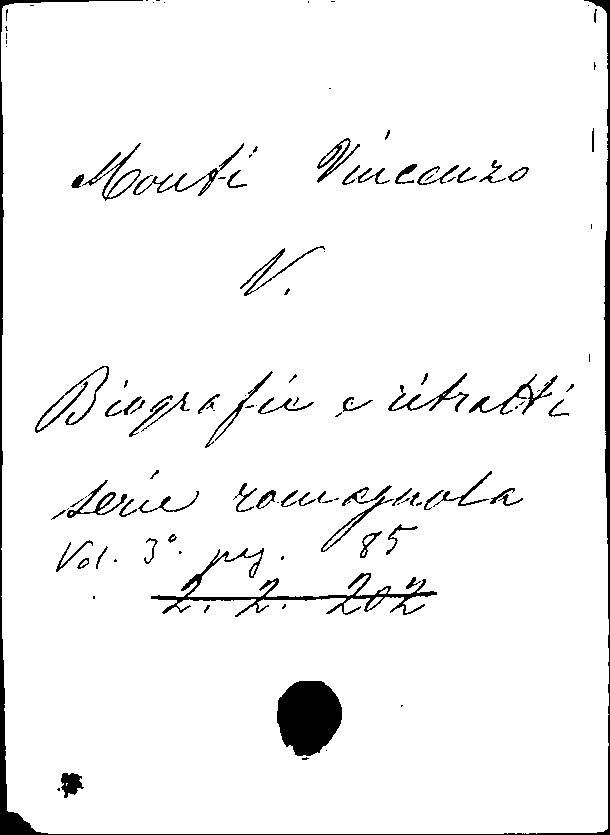 Monti Vincenzo
V.
Biografie e ritratti
serie romagnola
Vol. 3°. pg. 85
2. 2. 202